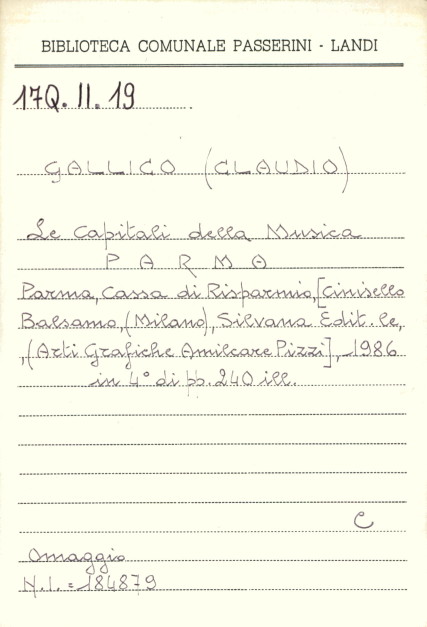 BIBLIOTECA COMUNALE PASSERINI - LANDI
17Q. II. 19
GALLICO (CLAUDIO)
Le Capitali della Musica
PARMA
Parma, Cassa di Risparmio, [Cinisello
Balsamo, (Milano), Silvana Edit.le,
,(Arti Grafiche Amilcare Pizzi], 1986
in 4° di pp. 240 ill.
C
Omaggio
N.I. = 184879